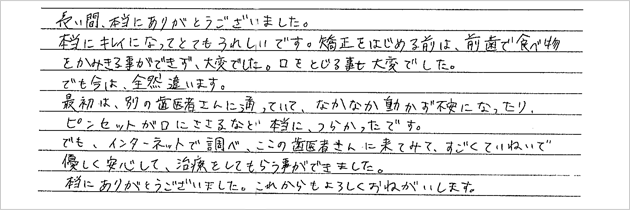 長い間、本当にありがとうございました。
本当にキレイになってとてもうれしいです。矯正をはじめる前は、前歯で食べ物
をかみきる事ができず、大変でした。口をとじる事も大変でした。
でも今は、全然違います。
最初は、別の歯医者さんに通っていて、なかなか動かず不安になったり、
ピンセットが口にささるなど本当に、つらかったです。
でも、インターネットで調べ、ここの歯医者さんに来てみて、すごくていねいで
優しく安心して、治療をしてもらう事ができました。
本当にありがとうございました。これからもよろしくおねがいします。